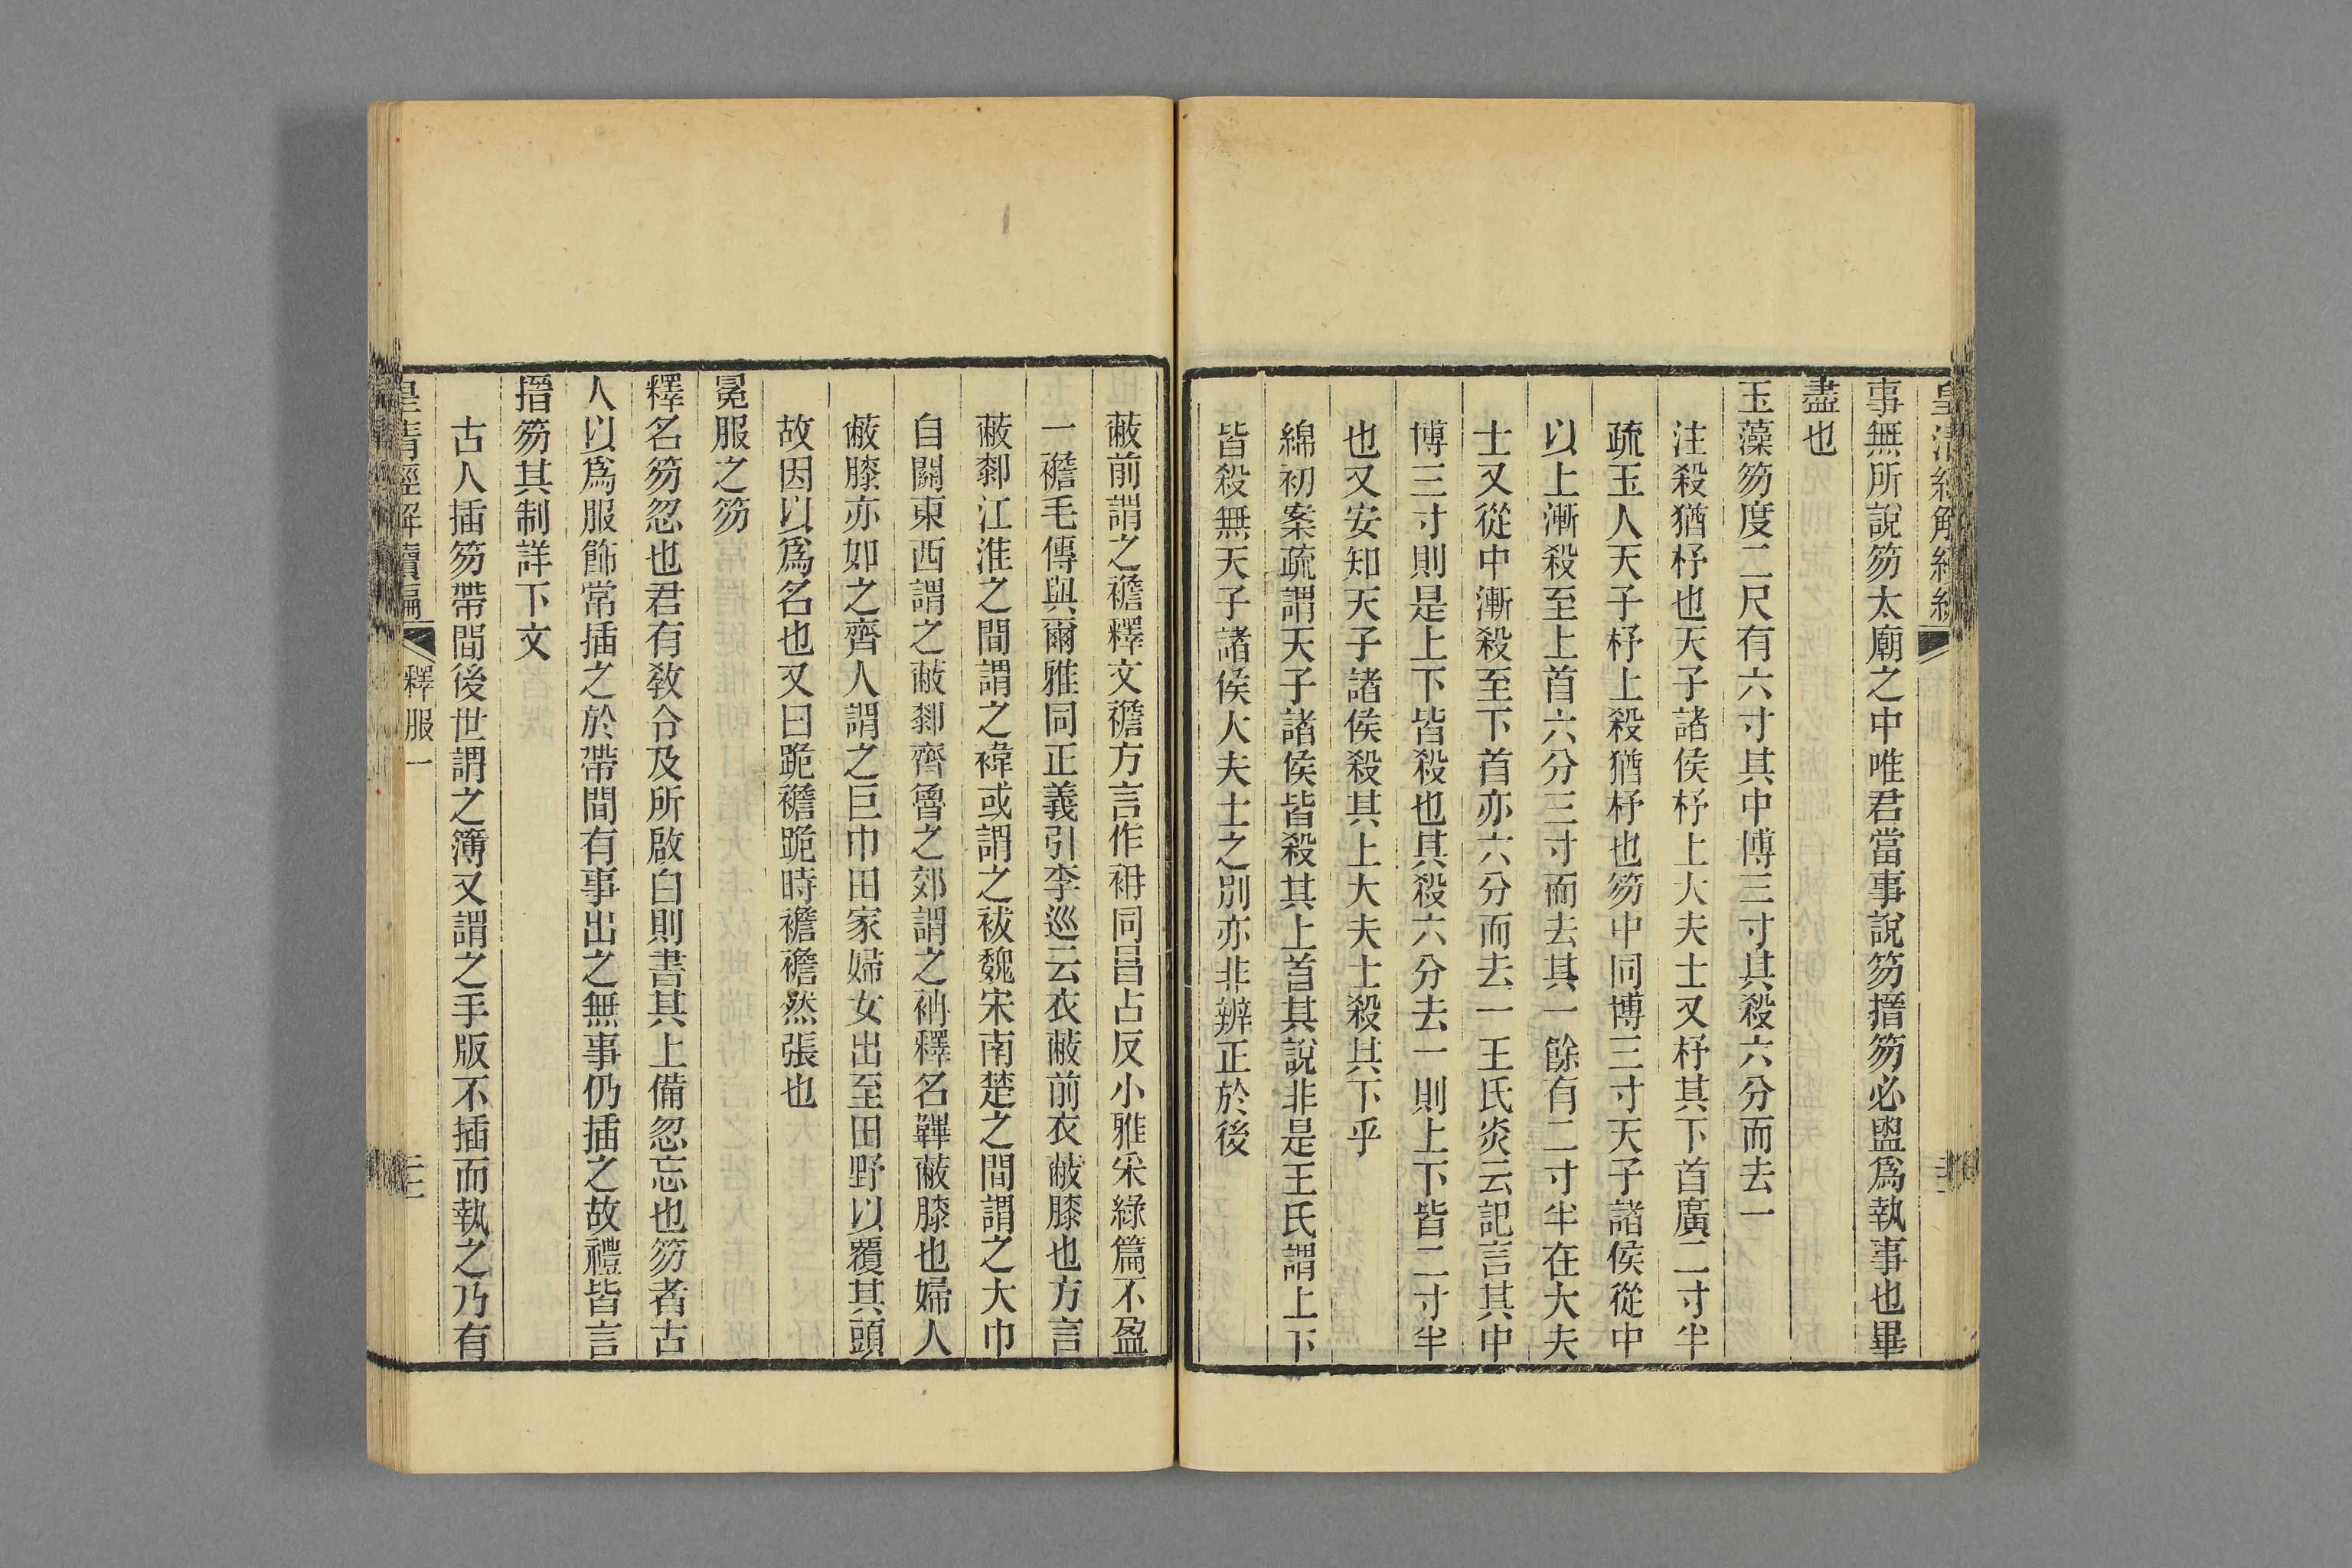 事無所說笏太廟之中唯君當事說笏搢笏必盥爲執事也畢
盡也
玉藻笏度二尺有六寸其中博三寸其殺六分而去一
注殺猶杼也天子諸侯杼上大夫士又杼其下首廣二寸半
疏玉人天子杼上殺猶杼也笏中同博三寸天子諸侯從中
以上漸殺至上首六分三寸而去其一餘有二寸半在大夫
士又從中漸殺至下首亦六分而去一王氏炎云記言其中
博三寸則是上下皆殺也其殺六分去一則上下皆二寸半
也又安知天子諸侯殺其上大夫士殺其下乎
綿初案疏謂天子諸侯皆殺其上首其說非是王氏謂上下
皆殺無天子諸侯大夫士之別亦非辨正於後
蔽前謂之襜釋文襜方言作袡同昌占反小雅采綠篇不盈
一襜毛傳與爾雅同正義引李巡云衣蔽前衣蔽膝也方言
蔽䣛江淮之間謂之褘或謂之祓魏宋南楚之間謂之大巾
自關東西謂之蔽䣛齊魯之郊謂之袡釋名韠蔽膝也婦人
蔽膝亦如之齊人謂之巨巾田家婦女出至田野以覆其頭
故因以爲名也又曰跪襜跪時襜襜然張也
冕服之笏
釋名笏忽也君有敎令及所啟白則書其上備忽忘也笏者古
人以爲服飾常插之於帶間有事出之無事仍插之故禮皆言
搢笏其制詳下文
古人插笏帶間後世謂之簿又謂之手版不插而執之乃有
皇清經解續編 釋服一